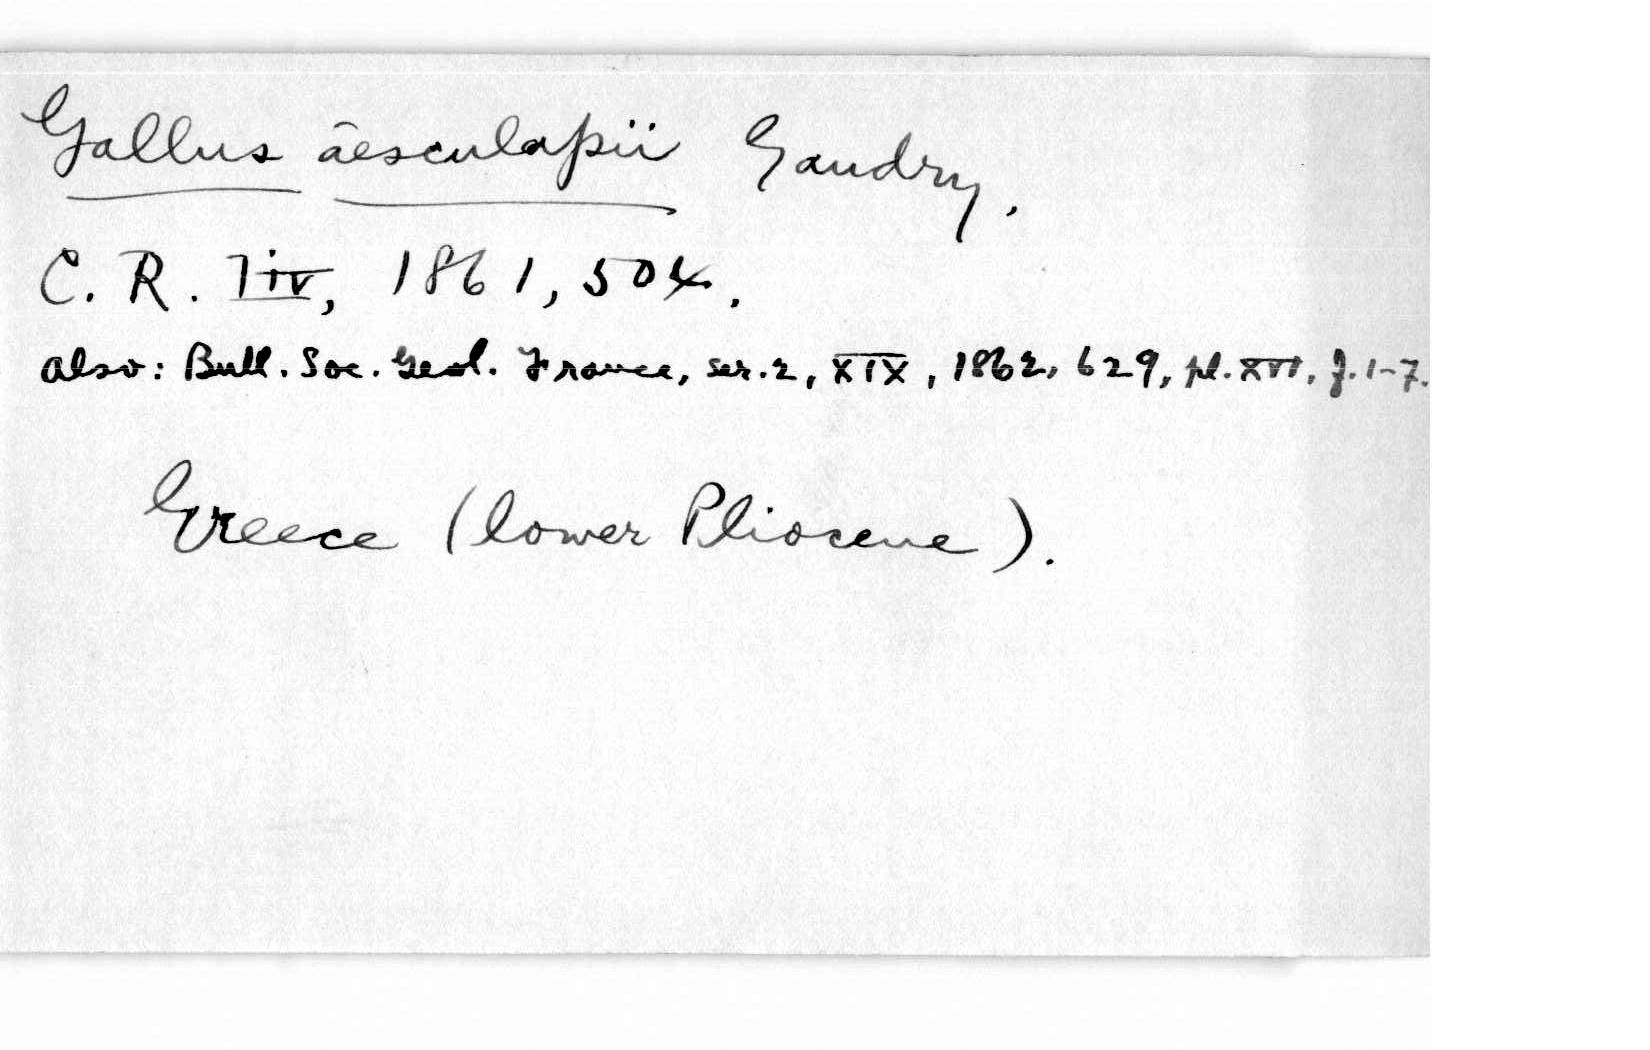 Gallus aesculapii Gaudry,
C. R. liv, 1861, 504.
also: Bull. Soc. Geol. France, ser. 2, XIX, 1862, 629, pl. XVI, f. 1-7.
Greece (lower Pliocene).